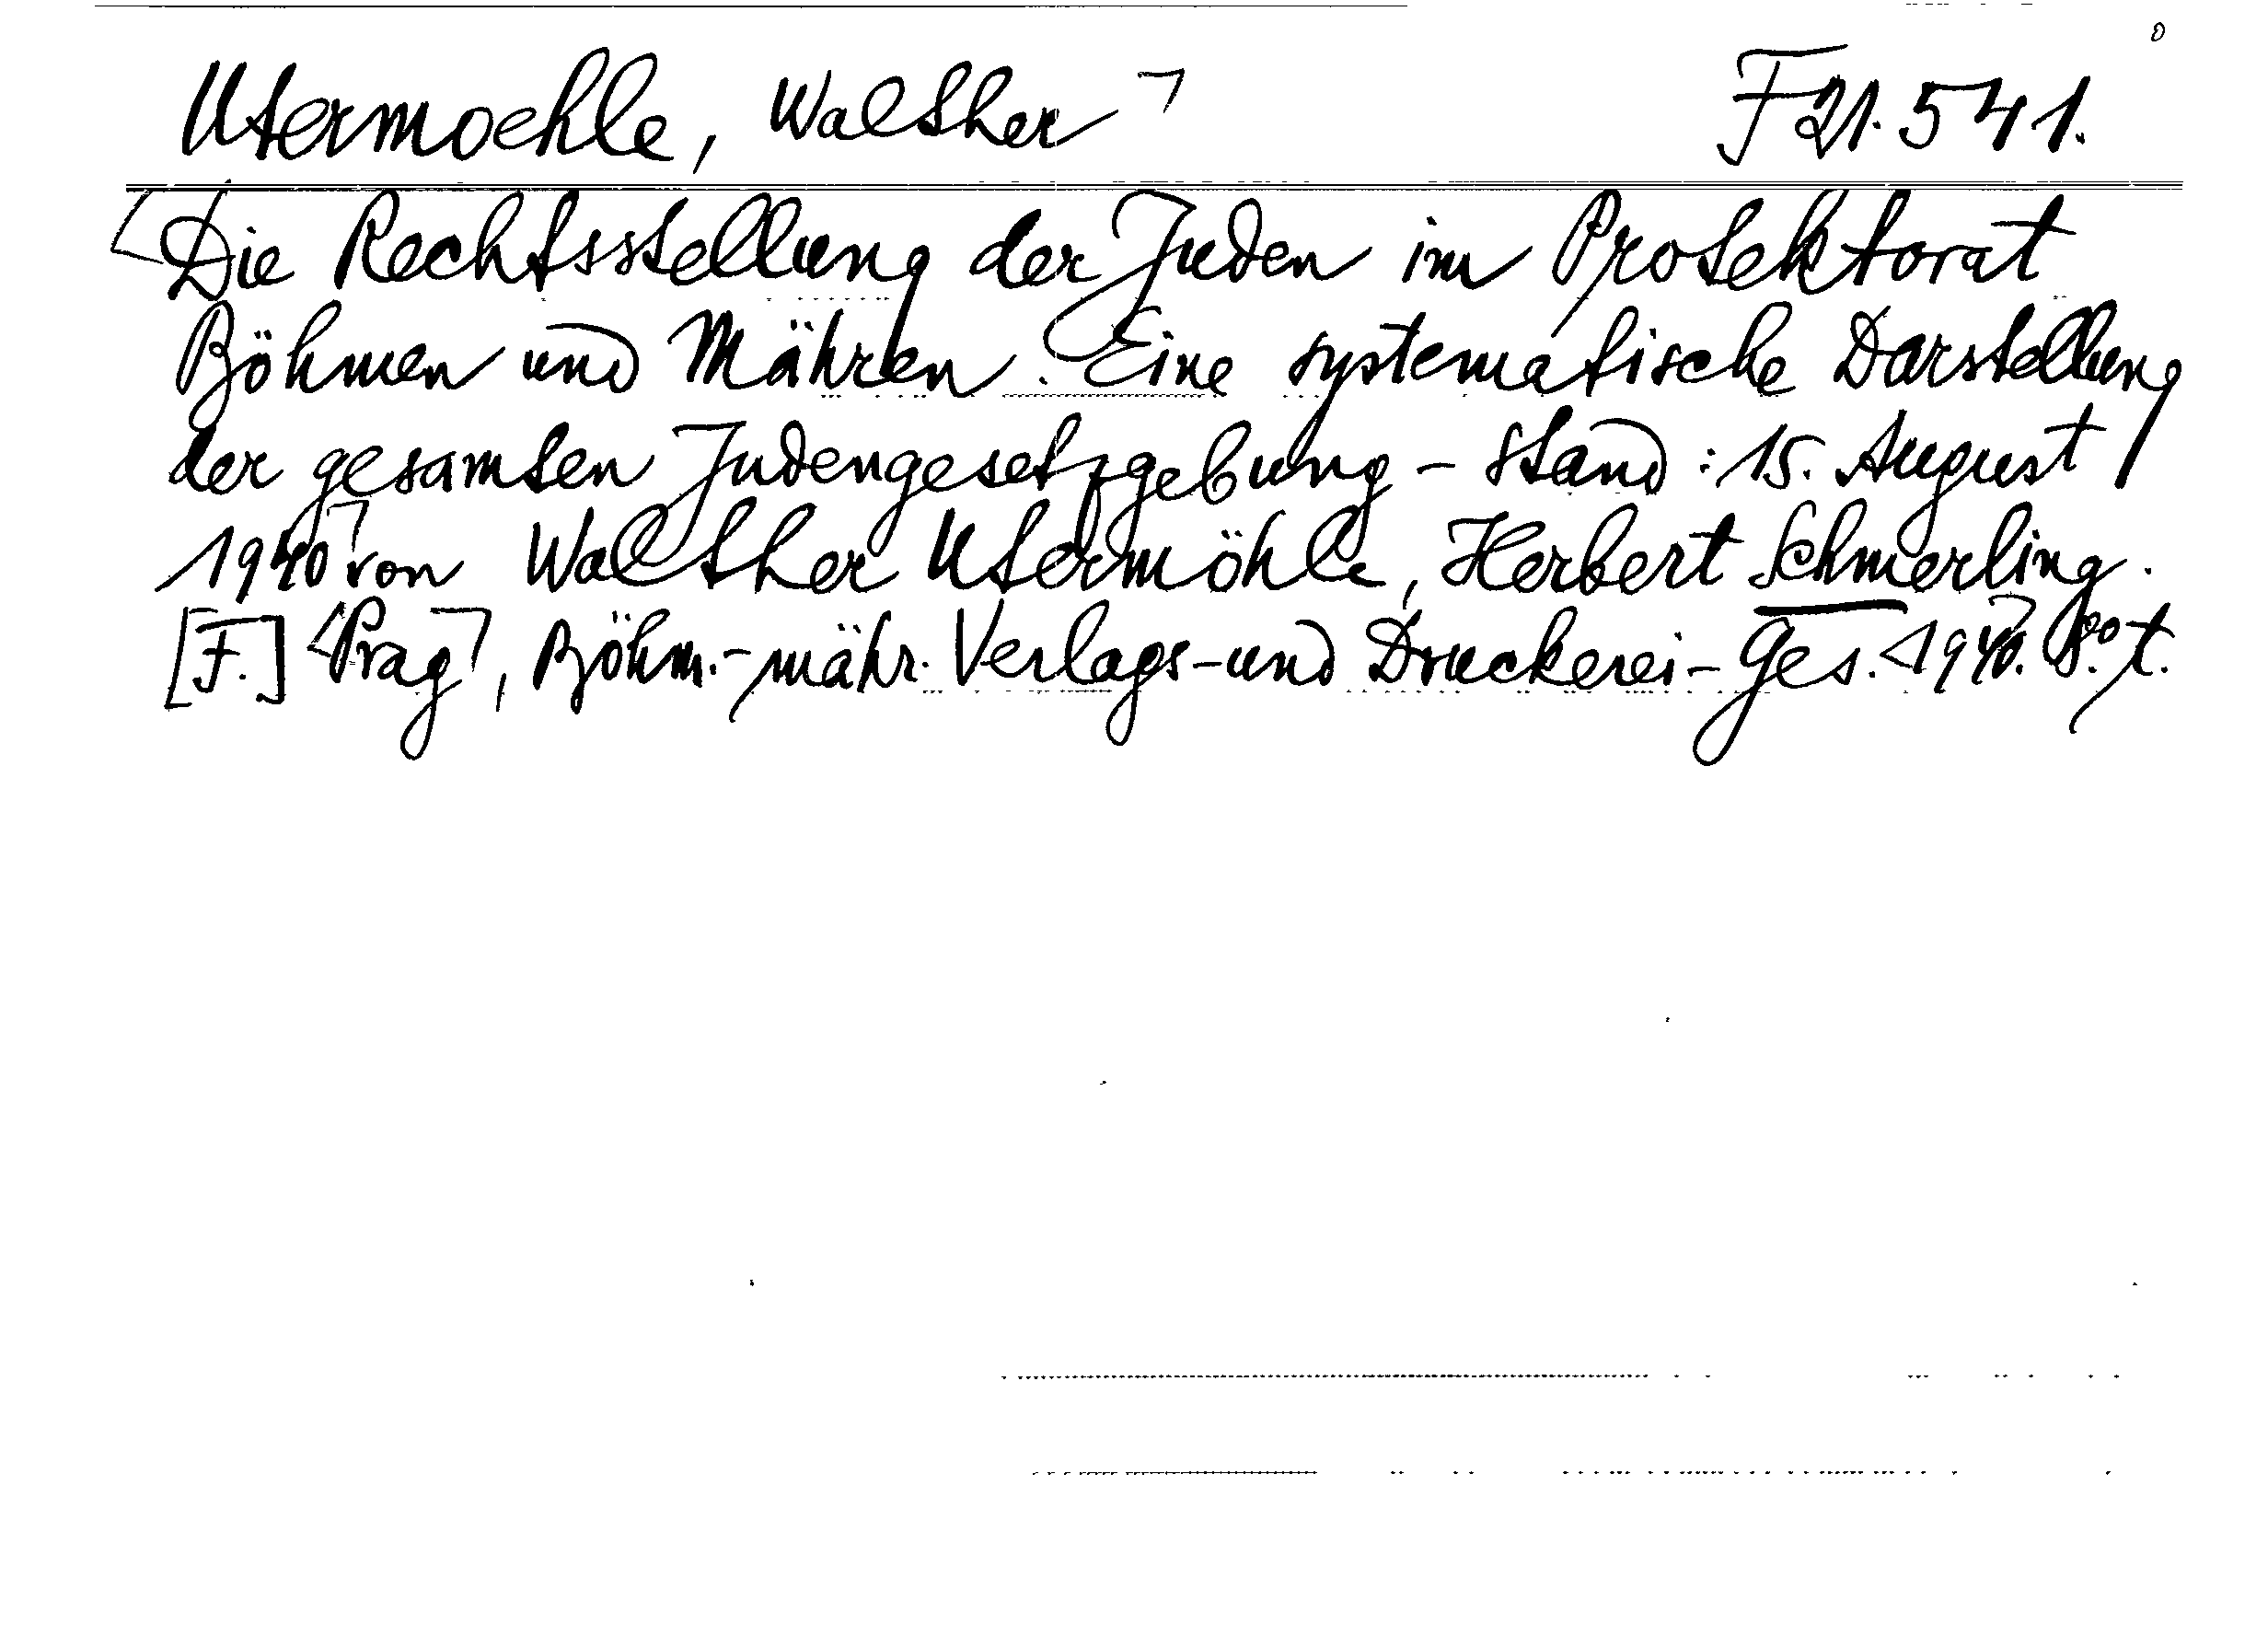 Utermoehle, Walther F 21.541.
Die Rechtsstellung der Juden im Protektorat
Böhmen und Mähren. Eine systematische Darstellung
der gesamten Judengesetzgebung - Stand: 15. August
1940 von Walther Utermöhle, Herbert Schmerling.
[F.] Prag, Böhm.-mähr. Verlags-und Druckerei-Ges. 1940. 8.° t.